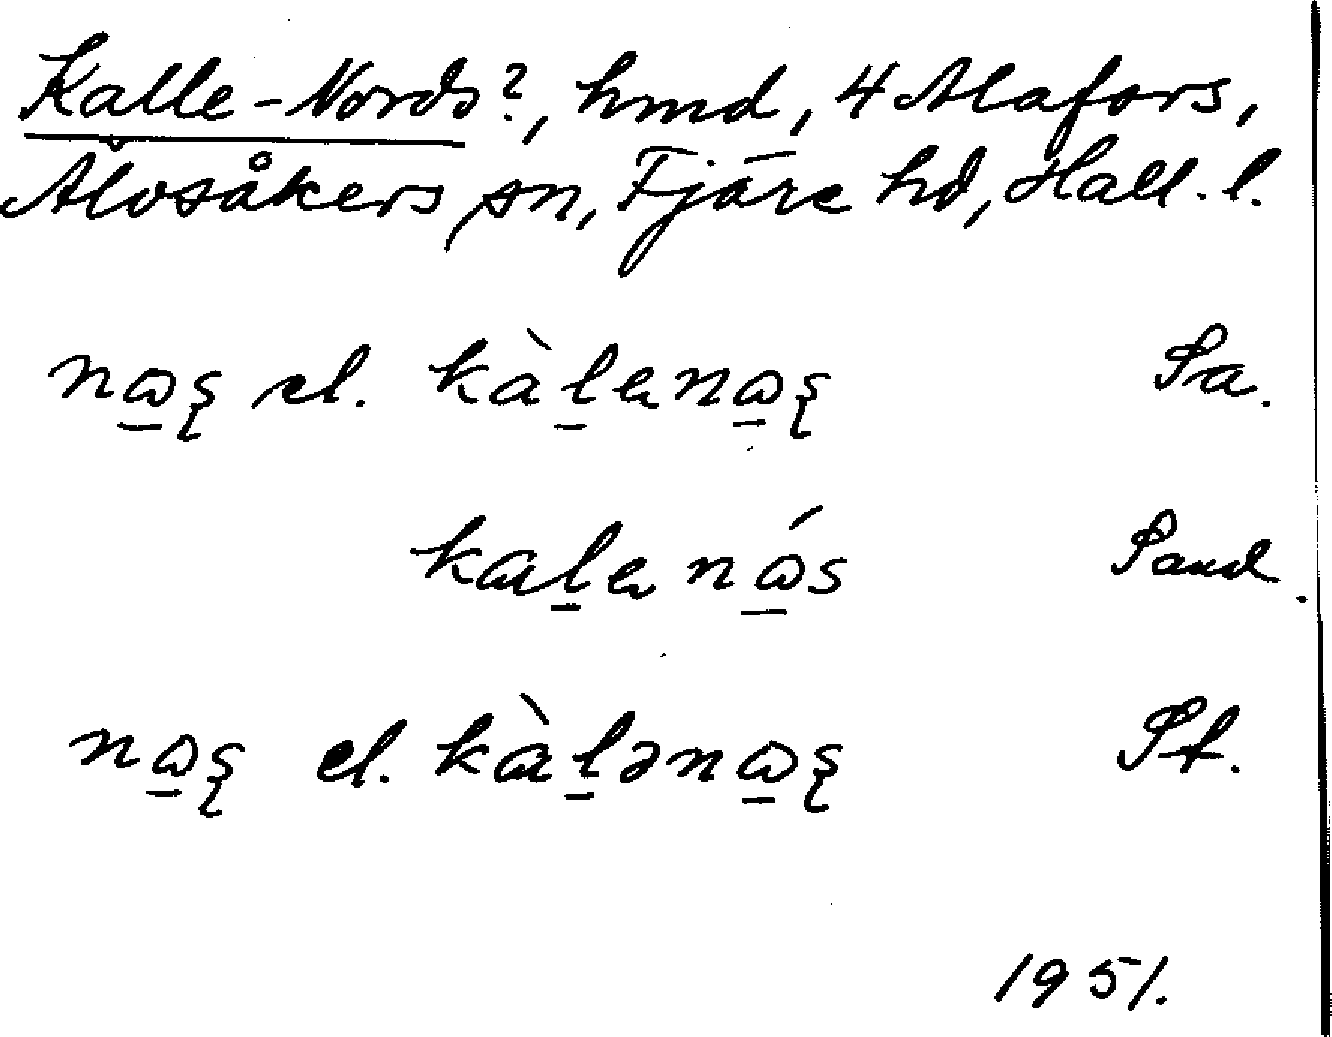 Kalle-Nords?, hmd, 4 Alafors,
Älvsåkers sn, Fjäre hd, Hall. l.
nɷ̲ʂ el. kàl̲ɐnɷ̲ʂ Sa.
kal̲ɐnɷ̲́s Sand.
nɷ̲ʂ el. kàl̲ənɷ̲ʂ St.
1951.